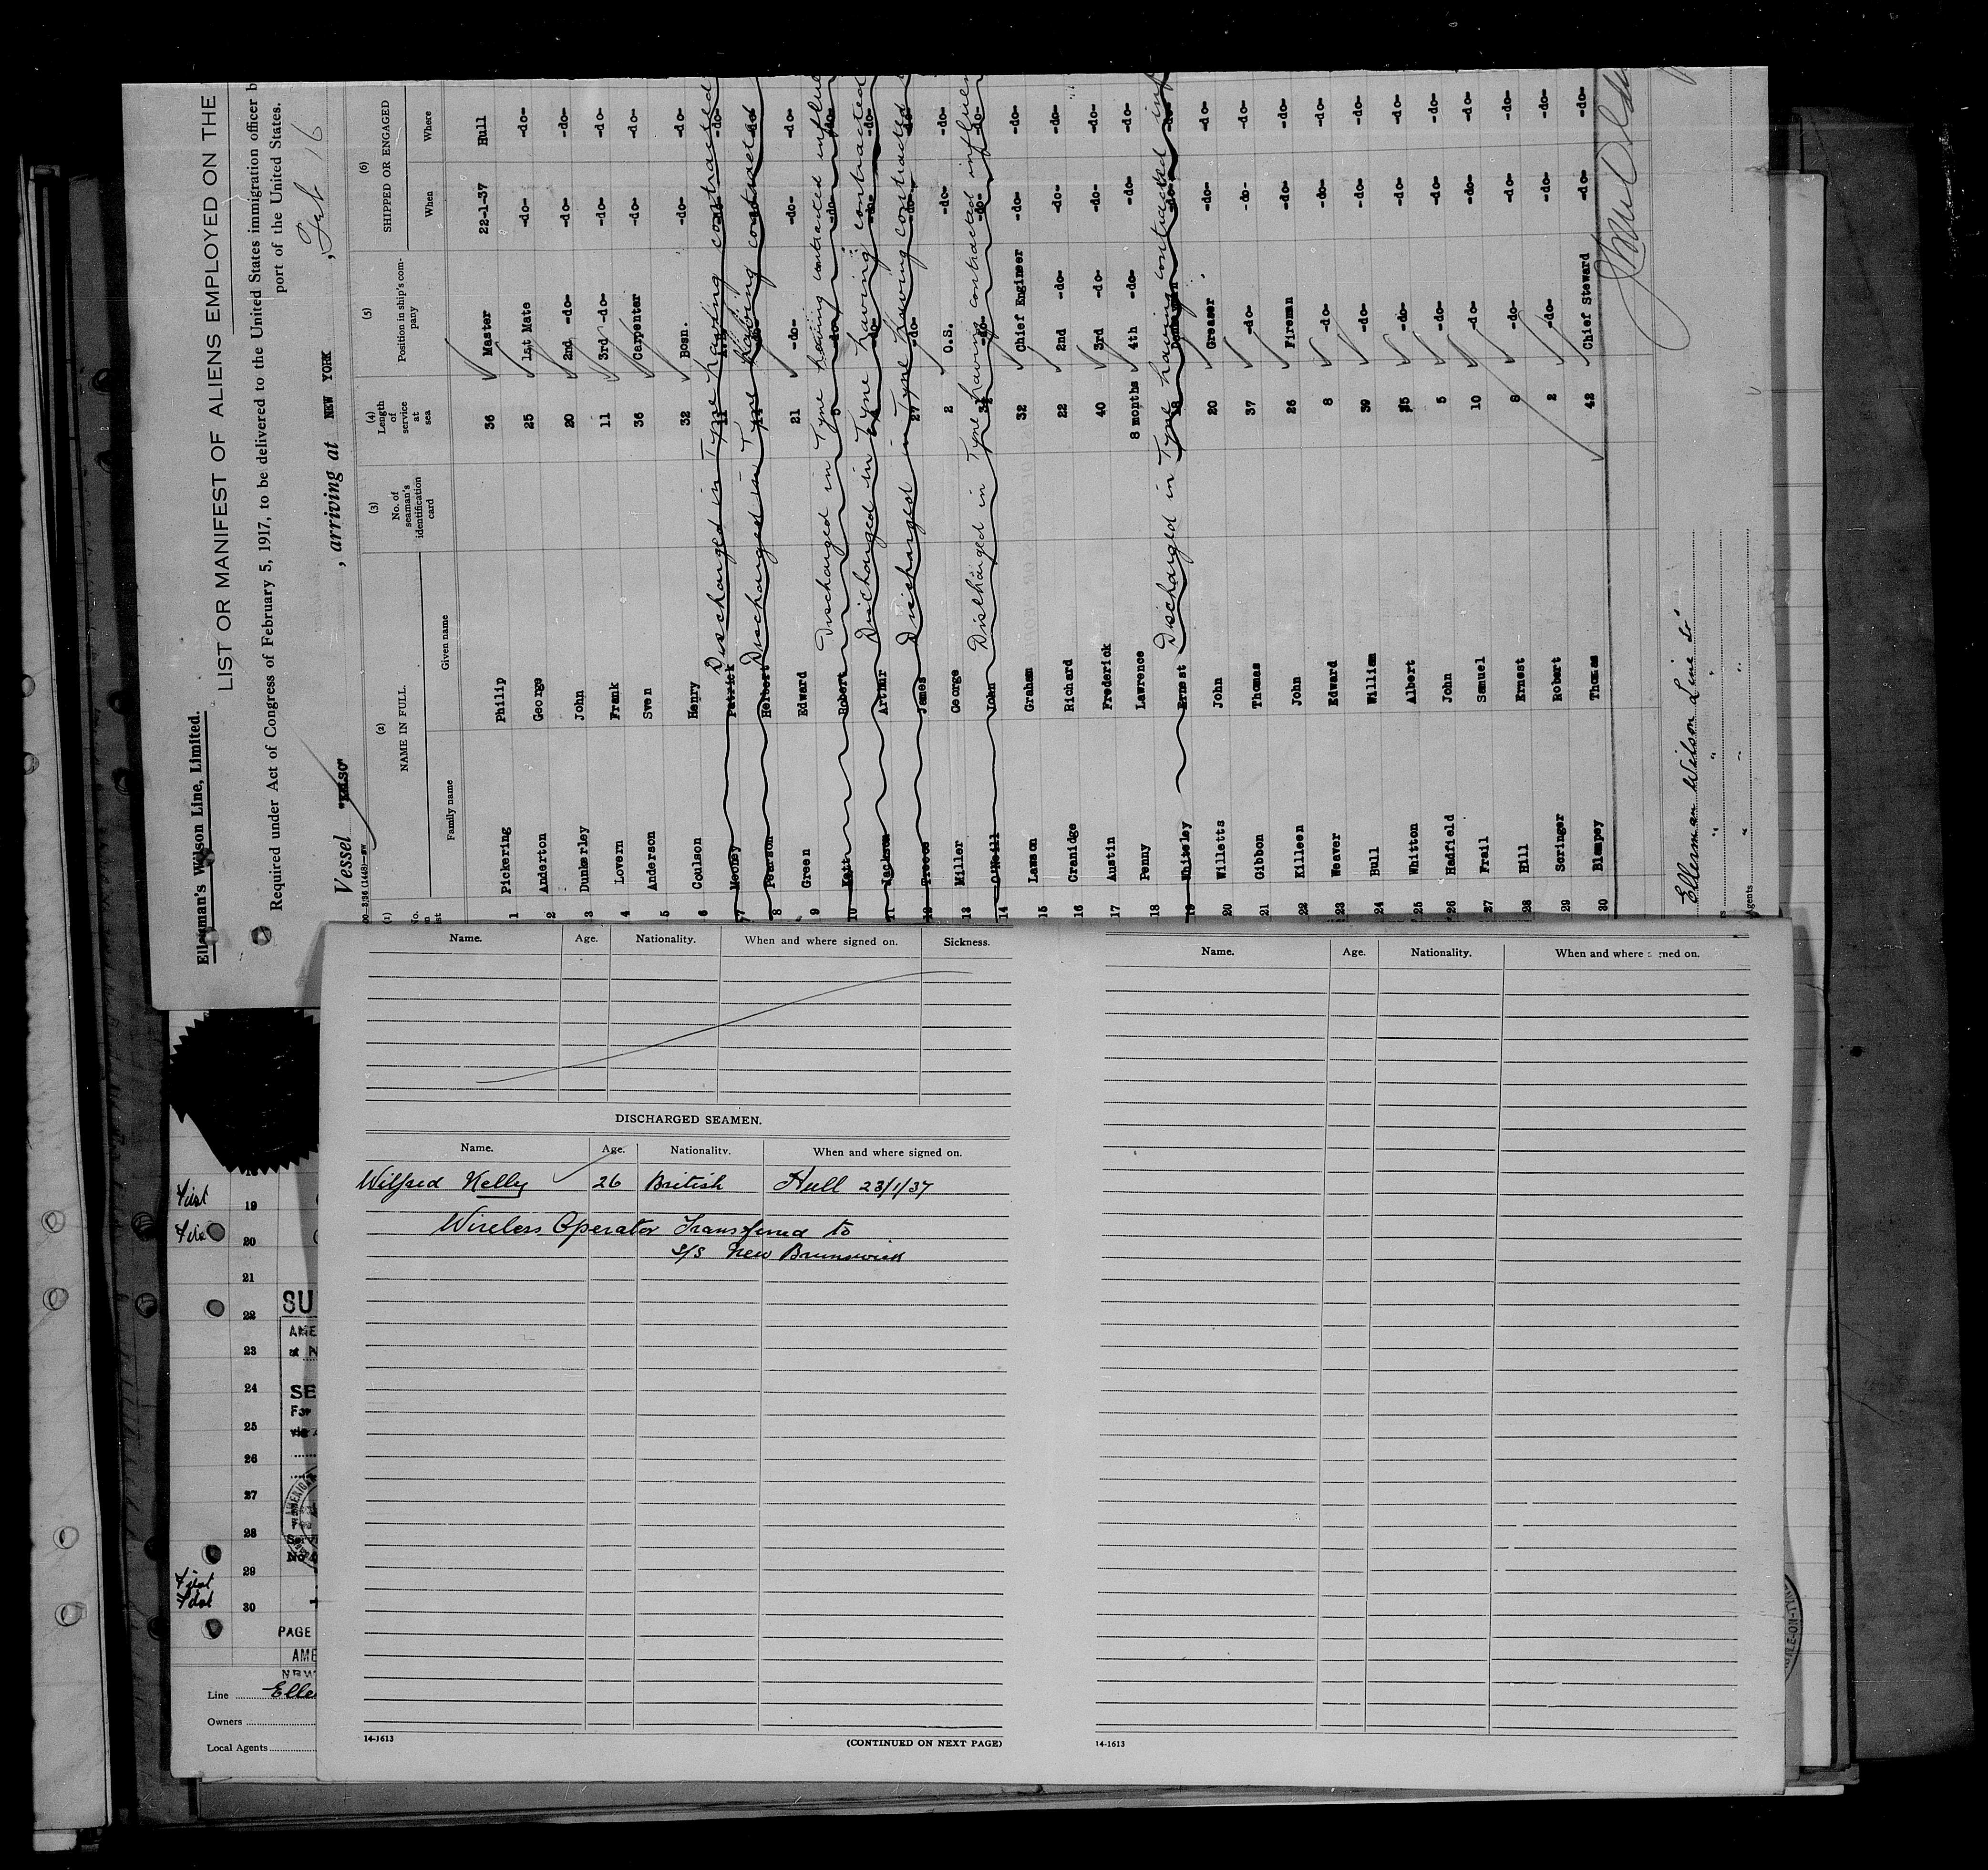 Ellerman's Wilson Line, Limited.
LIST OR MANIFEST OF ALIENS EMPLOYED ON THE
Required under Act of Congress of February 5, 1917, to be delivered to the United States immigration officer b
port of the United States.
Vessel "KELSO" , arriving at NEW YORK , Feb 16
(1) (2) (3) (4) (5) (6)
No. NAME IN FULL No. of seaman's identification card Length of service at sea Position in ship's company SHIPPED OR ENGAGED
Family name Given name When Where
1 Pickering Philip 36 Master 22-1-37 Hull
2 Anderton George 25 1st Mate -do- -do-
3 Dunkerley John 20 2nd -do- -do- -do-
4 Lovern Frank 11 3rd -do- -do- -do-
5 Anderson Sven 36 Carpenter -do- -do-
6 Coulson Henry 32 Bosn. -do- -do-
7 Mooney Patrick Discharged in Tyne having contracted -do-
8 Pearson Herbert Discharged in Tyne having contracted -do-
9 Green Edward 21 -do- -do- -do-
10 Katt Robert Discharged in Tyne having contracted influe -do- -do-
11 Jackson Arthur Discharged in Tyne having contracted -do- -do-
12 James Discharged in Tyne having contracted 27 -do- -do- -do-
13 Miller George 2 O.S. -do- -do-
14 O'Neill John Discharged in Tyne having contracted influen -do- -do- -do-
15 Lawson Graham 32 Chief Engineer -do- -do-
16 Cranidge Richard 22 2nd -do- -do- -do-
17 Austin Frederick 40 3rd -do- -do- -do-
18 Penny Lawrence 8 months 4th -do- -do- -do-
19 Whiteley Ernest Discharged in Tyne having contracted inf 18 -do- -do-
20 Willetts John 20 Greaser -do- -do-
21 Gibbon Thomas 37 -do- -do- -do-
22 Killeen John 26 Fireman -do- -do-
23 Weaver Edward 8 -do- -do- -do-
24 Bull William 39 -do- -do- -do-
25 Whitton Albert -do- -do- -do-
26 Hadfield John 5 -do- -do- -do-
27 Frail Samuel 10 -do- -do- -do-
28 Hill Ernest 8 -do- -do- -do-
29 Scringer Robert 2 -do- -do- -do-
30 Blampey Thomas 42 Chief Steward -do- -do-
Ellerman Wilson Line Ld
Agents
Name. Age. Nationality. When and where signed on. Sickness.
DISCHARGED SEAMEN.
Name. Age. Nationality. When and where signed on.
Wilfred Kelly 26 British Hull 23/1/37
Wireless Operator Transferred to
S/S New Brunswick
14-1613
(CONTINUED ON NEXT PAGE)
Name. Age. Nationality. When and where signed on.
14-1613
First
19
20
21
22
23
24
25
26
27
28
29
30
SU
AME
SE
For
PAGE
AME
NEW
Line Elle
Owners
Local Agents